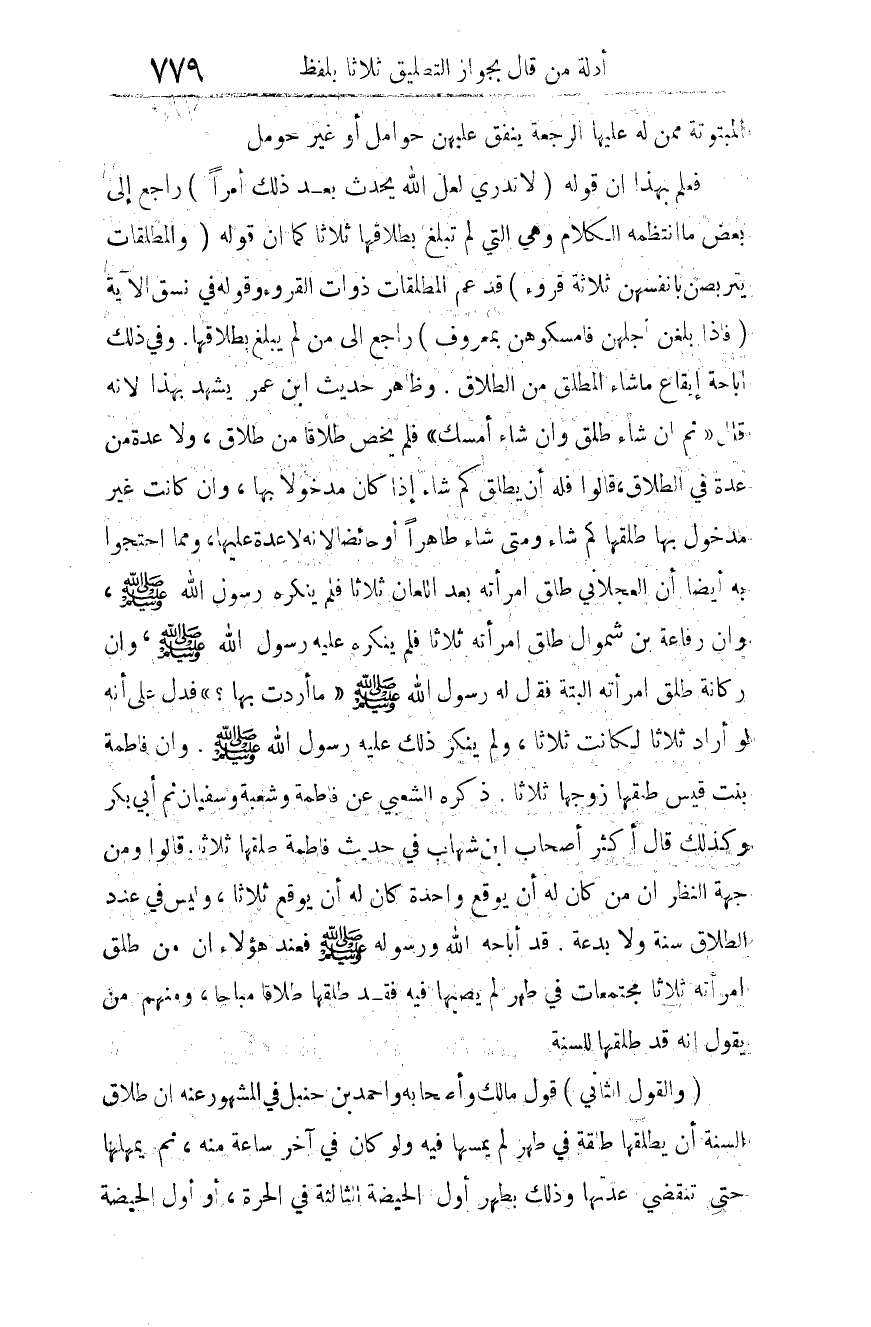 أدلة من قال بجواز التطليق ثلاثا بلفظ ٧٧٩
المبتوتة ممن له عليها الرجعة ينفق عليهن حوامل أو غير حومل
فعلم بهذا ان قوله ( لاتدري لعل الله يحدث بعد ذلك أمراً ) راجع إلى
بعض ماانتظمه الكلام وهي التي لم تبلغ بطلاقها ثلاثا كما ان قوله ( والمطلقات
يتربصن بانفسهن ثلاثة قروء ) قد عم المطلقات ذوات القروء وقوله في نسق الآية
( فاذا بلغن أجلهن فامسكوهن بمعروف ) راجع الى من لم يبلغ بطلاقها. وفي ذلك
اباحة إيقاع ماشاء المطلق من الطلاق . وظاهر حديث ابن عمر يشهد بهذا لانه
قال « ثم ان شاء طلق وان شاء أمسك» فلم يخص طلاقا من طلاق ، ولا عدة من
عدة في الطلاق،قالوا فله أن يطلق كم شاء إذا كان مدخولا بها ، وان كانت غير
مدخول بها طلقها كم شاء ومتى شاء طاهراً أو حائضا لانه لا عدة عليها، ومما احتجوا
به أيضا أن العجلاني طلق امرأته بعد اللعان ثلاثا فلم ينكره رسول الله ﷺ ،
وان رفاعة بن شموال طلق امرأته ثلاثا فلم ينكره عليه رسول الله ﷺ ، وان
ركانة طلق امرأته البتة فقل له رسول الله ﷺ « ماأردت بها ؟ » فدل على أنه
لو أراد ثلاثا لكانت ثلاثا ، ولم ينكر ذلك عليه رسول الله ﷺ . وان فاطمة
بنت قيس طلقها زوجها ثلاثا . ذكره الشعبي عن فاطمة وشعبة وسفيان ثم أبي بكر
وكذلك قال أكثر أصحاب ابن شهاب في حديث فاطمة طلقها ثلاثا. قالوا ومن
جهة النظر ان من كان له أن يوقع واحدة كان له أن يوقع ثلاثا ، وليس في عدد
الطلاق سنة ولا بدعة . قد أباحه الله ورسوله ﷺ فعند هؤلاء ان من طلق
امرأته ثلاثا مجتمعات في طهر لم يصبها فيه فقد طلقها طلاقا مباحا ، ومنهم من
يقول إنه قد طلقها للسنة
( والقول الثاني ) قول مالك وأصحابه واحمد بن حنبل في المشهور عنه ان طلاق
السنة أن يطلقها طلقة في طهر لم يمسها فيه ولو كان في آخر ساعة منه ، ثم يمهلها
حتى تنقضي عدتها وذلك بطهر أول الحيضة الثالثة في الحرة ، أو أول الحيضة